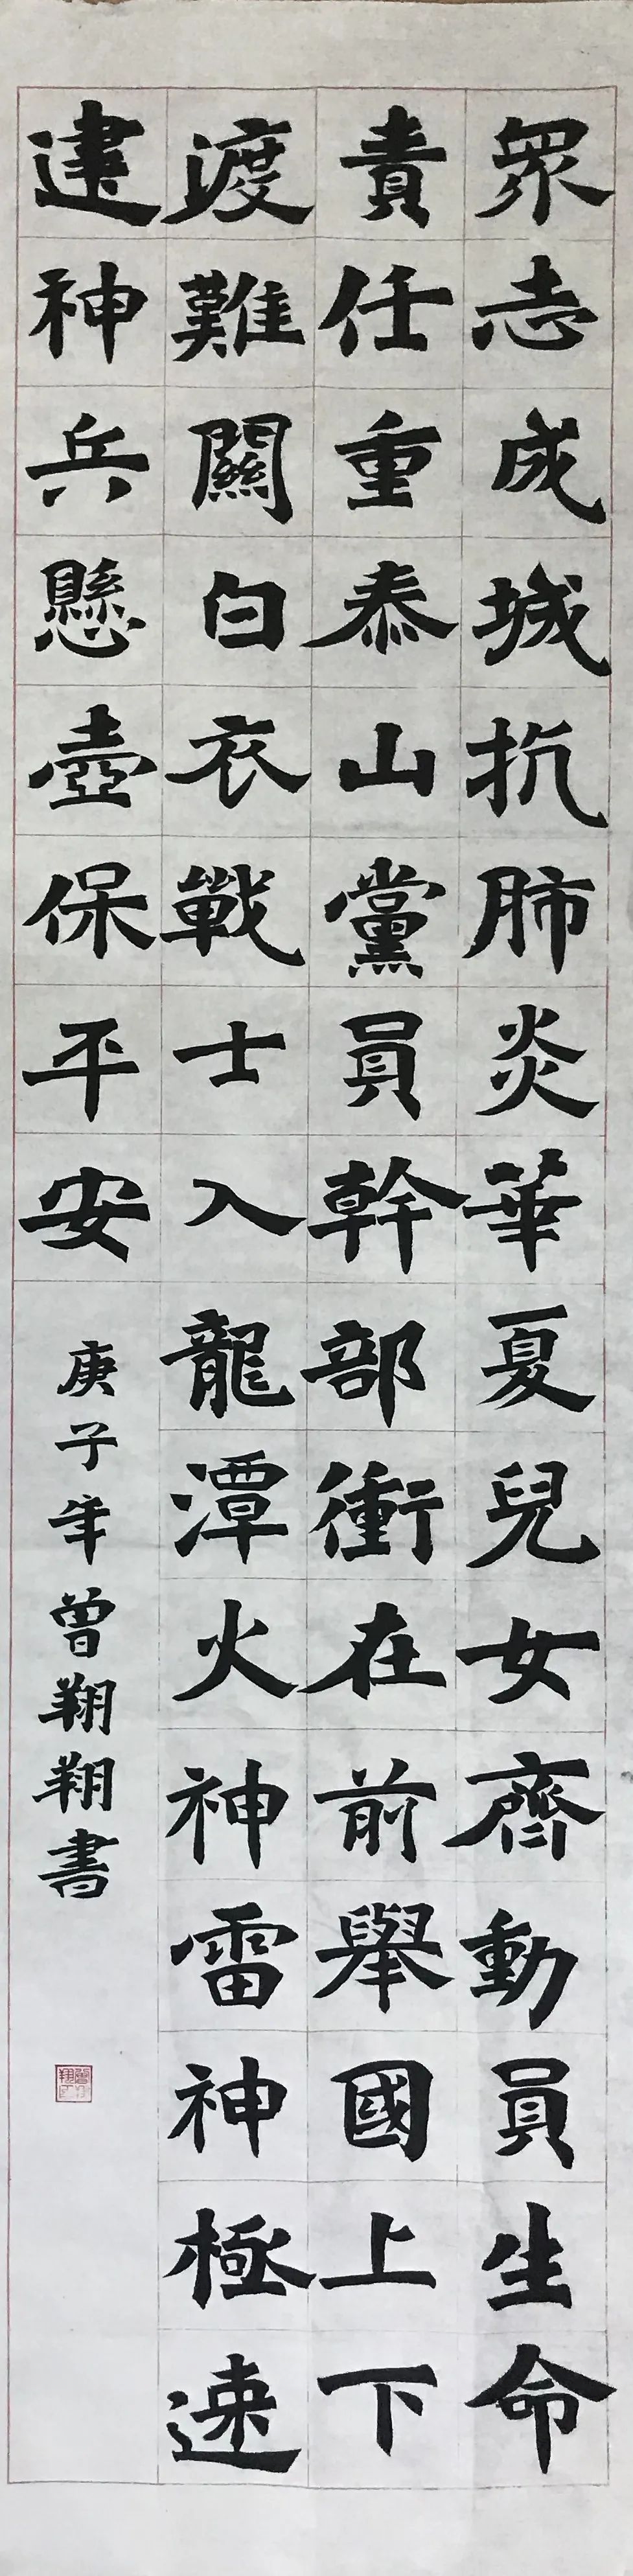 眾志成城抗肺炎華夏兒女齊動員生命
責任重泰山黨員幹部衝在前舉國上下
渡難關白衣戰士入龍潭火神雷神極速
建神兵懸壺保平安
庚子年曾翔翔書